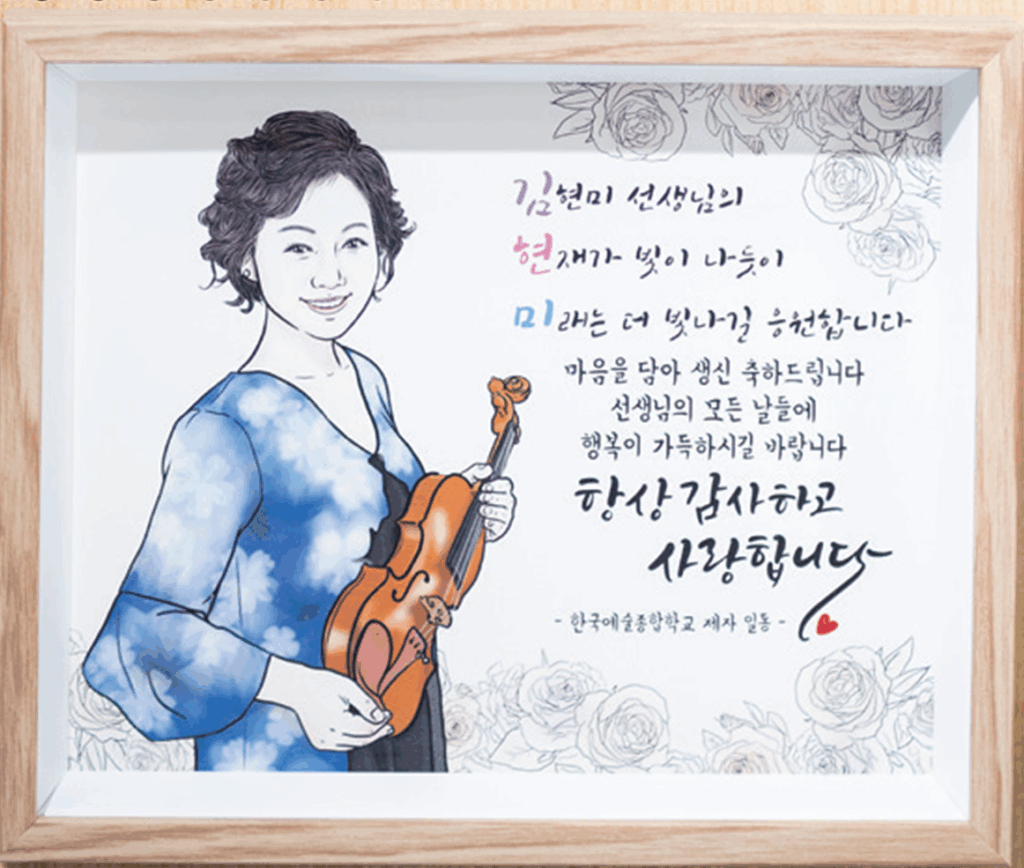 김현미 선생님의
현재가 빛이 나듯이
미래는 더 빛나길 응원합니다
마음을 담아 생신 축하드립니다
선생님의 모든 날들에
행복이 가득하시길 바랍니다
항상 감사하고
사랑합니다
- 한국예술종합학교 제자 일동 -